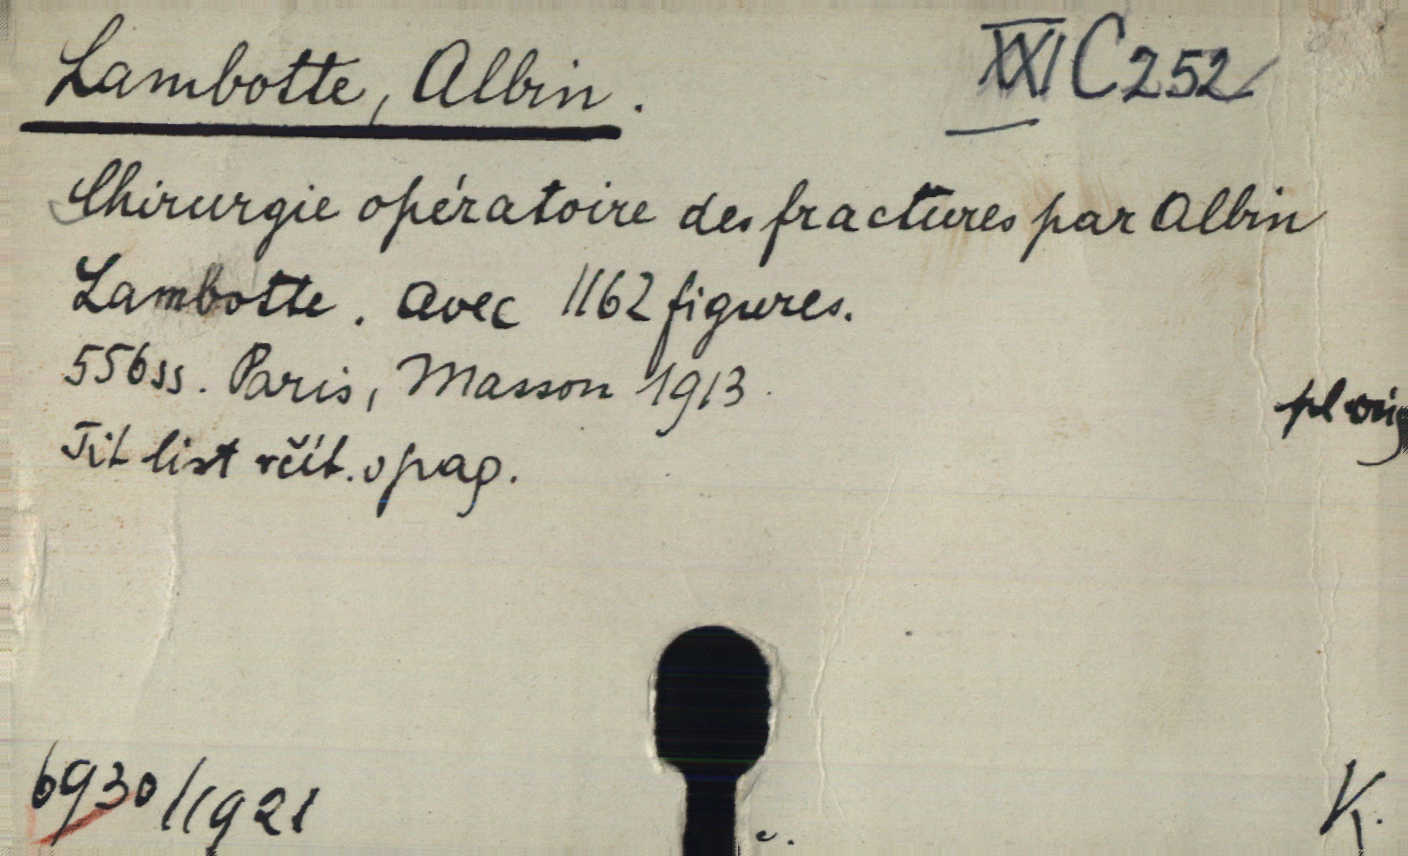 Lambotte, Albin.
XXI C 252
Chirurgie opératoire des fractures par Albin
Lambotte. avec 1162 figures.
556 ss. Paris, Masson 1913.
pl orig
Tit list včít. v pag.
6930/1921
K.